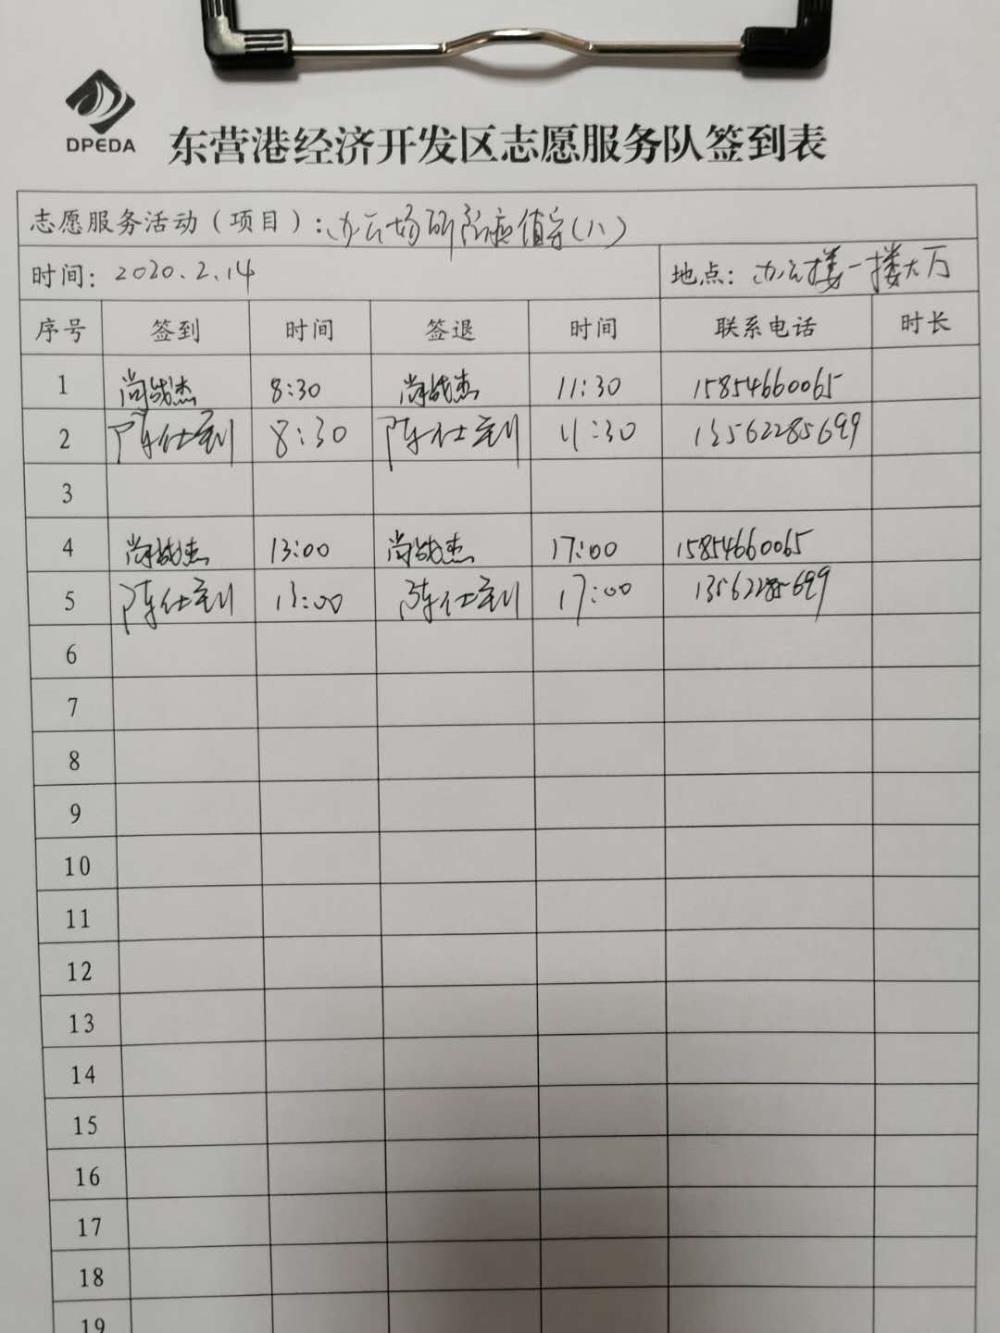 DPEDA
东营港经济开发区志愿服务队签到表
志愿服务活动（项目）：办公场所防疫值守（八）
时间：2020.2.14 地点：办公楼一楼大厅
序号 签到 时间 签退 时间 联系电话 时长
1 尚战杰 8:30 尚战杰 11:30 15854660065
2 陈仕 8:30 陈仕 11:30 13562285699
3
4 尚战杰 13:00 尚战杰 17:00 15854660065
5 陈仕 13:00 陈仕 17:00 13562285699
6
7
8
9
10
11
12
13
14
15
16
17
18
19